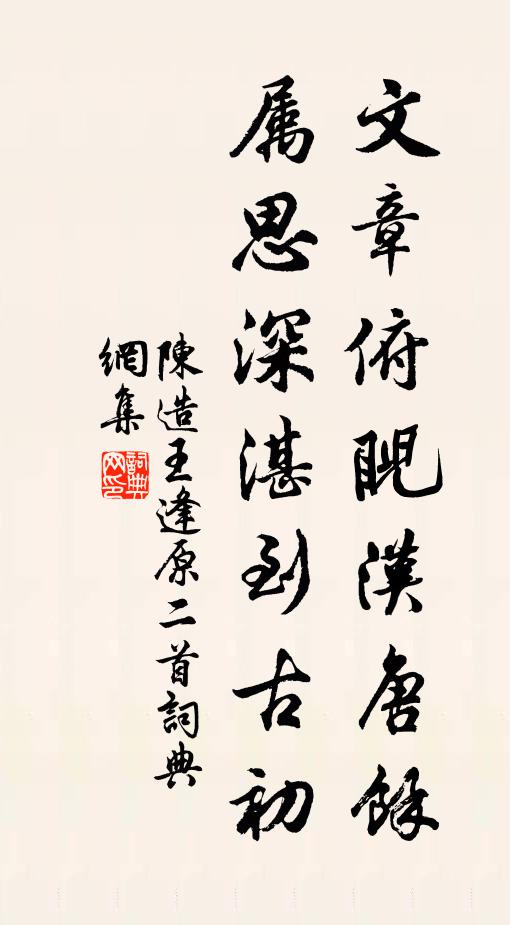 文章俯睨漢唐餘
属思深湛到古初
陳造王逢原二首詞典
網集
詞典
网印